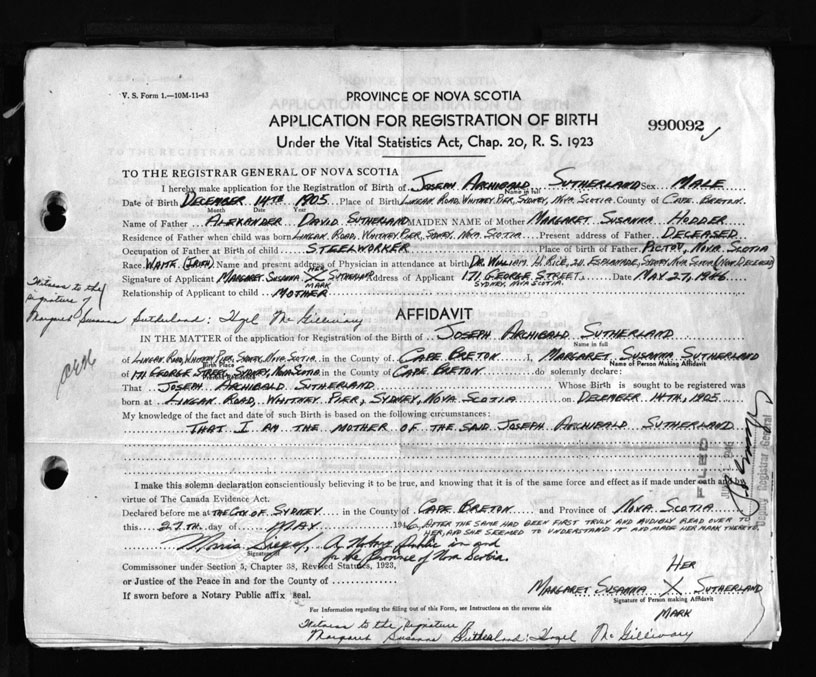 V. S. Form 1.—10M-11-43
PROVINCE OF NOVA SCOTIA
APPLICATION FOR REGISTRATION OF BIRTH
Under the Vital Statistics Act, Chap. 20, R. S. 1923
990092
TO THE REGISTRAR GENERAL OF NOVA SCOTIA
I hereby make application for the Registration of Birth of JOSEPH ARCHIBALD SUTHERLAND Sex MALE
Name in full
Date of Birth DECEMBER 14TH 1905 Place of Birth LINGAN ROAD, WHITNEY PIER, SYDNEY, NOVA SCOTIA County of CAPE BRETON
Month Date Year
Name of Father ALEXANDER DAVID SUTHERLAND MAIDEN NAME of Mother MARGARET SUSANNA HODDER
Residence of Father when child was born LINGAN ROAD, WHITNEY PIER, SYDNEY, NOVA SCOTIA Present address of Father DECEASED
Occupation of Father at Birth of child STEELWORKER Place of birth of Father PICTOU, NOVA SCOTIA
Race WHITE (IRISH) Name and present address of Physician in attendance at birth DR. WILLIAM H. RICE, 24 ESPLANADE, SYDNEY, NOVA SCOTIA (NOW DECEASED)
Signature of Applicant MARGARET SUSANNA HER X MARK SUTHERLAND Address of Applicant 171 GEORGE STREET, SYDNEY, NOVA SCOTIA. Date MAY 27, 1946
Relationship of Applicant to child MOTHER
Witness to the signature of Margaret Susanna Sutherland: Hazel McGillivary
AFFIDAVIT
IN THE MATTER of the application for registration of Birth of JOSEPH ARCHIBALD SUTHERLAND
Name in full
of LINGAN ROAD, WHITNEY PIER, SYDNEY, NOVA SCOTIA in the County of CAPE BRETON I, MARGARET SUSANNA SUTHERLAND
Birth Place Name of Person Making Affidavit
of 171 GEORGE STREET, SYDNEY, NOVA SCOTIA in the County of CAPE BRETON do solemnly declare:
That JOSEPH ARCHIBALD SUTHERLAND Whose Birth is sought to be registered was
born at LINGAN ROAD, WHITNEY PIER, SYDNEY, NOVA SCOTIA on DECEMBER 14TH, 1905
My knowledge of the fact and date of such Birth is based on the following circumstances:
THAT I AM THE MOTHER OF THE SAID JOSEPH ARCHIBALD SUTHERLAND
FILED
Deputy Registrar General
I make this solemn declaration conscientiously believing it to be true, and knowing that it is of the same force and effect as if made under oath and by
virtue of The Canada Evidence Act.
Declared before me at THE CITY OF SYDNEY in the County of CAPE BRETON and Province of NOVA SCOTIA
this 27TH day of MAY 1946, AFTER THE SAME HAD BEEN FIRST TRULY AND AUDIBLY READ OVER TO
HER, AND SHE SEEMED TO UNDERSTAND IT AND MADE HER MARK THERETO.
A Notary Public in and
for the Province of Nova Scotia.
Signature
Commissioner under Section 5, Chapter 38, Revised Statutes, 1923,
or Justice of the Peace in and for the County of
If sworn before a Notary Public affix seal.
HER
MARGARET SUSANNA X SUTHERLAND
Signature of Person making Affidavit
MARK
For Information regarding the filling out of this Form, see Instructions on the reverse side
Witness to the signature
Margaret Susanna Sutherland: Hazel McGillivary